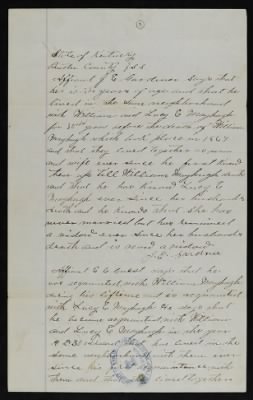 State of Kentucky
County SS
Affiant J E Gardner says that
he is years of age and that he
lived in the same neighborhood
with William and Lucy E Mayhugh
for years before the death of William
Mayhugh which took place in 1864
and that they lived together as man
and wife ever since he first knew
them up till William Mayhughs death
and that he has known Lucy E
Mayhugh ever since her husbands
death and he knows that she has
never married but has remained
a widow ever since her husbands
death and is now a widow
J. E. Gardner
Affiant E C says that he
was acquainted with William Mayhugh
during his lifetime and is acquainted
with Lucy E Mayhugh he says that
he became acquainted with William
and Lucy E Mayhugh in the year
A D and has lived in the
same neighborhood with them ever
since his first acquaintance with
them and that they lived together